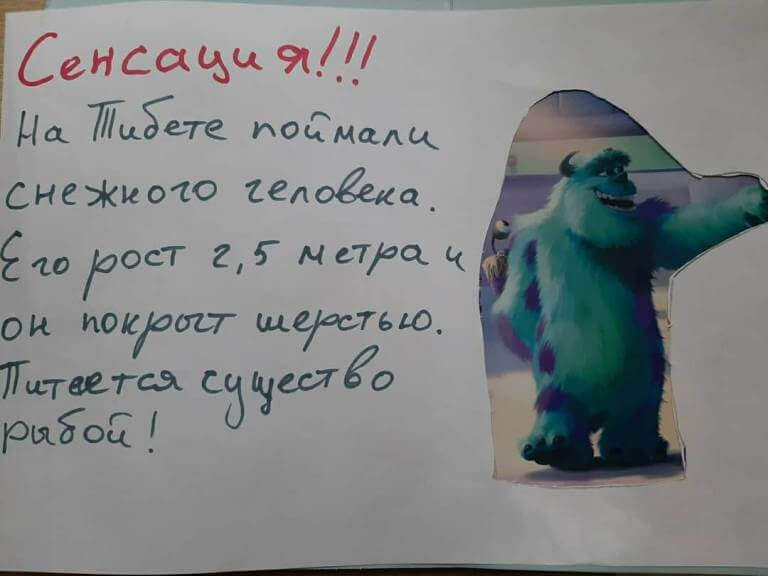 Сенсация!!!
На Тибете поймали
снежного человека.
Его рост 2,5 метра и
он покрыт шерстью.
Питается существо
рыбой!